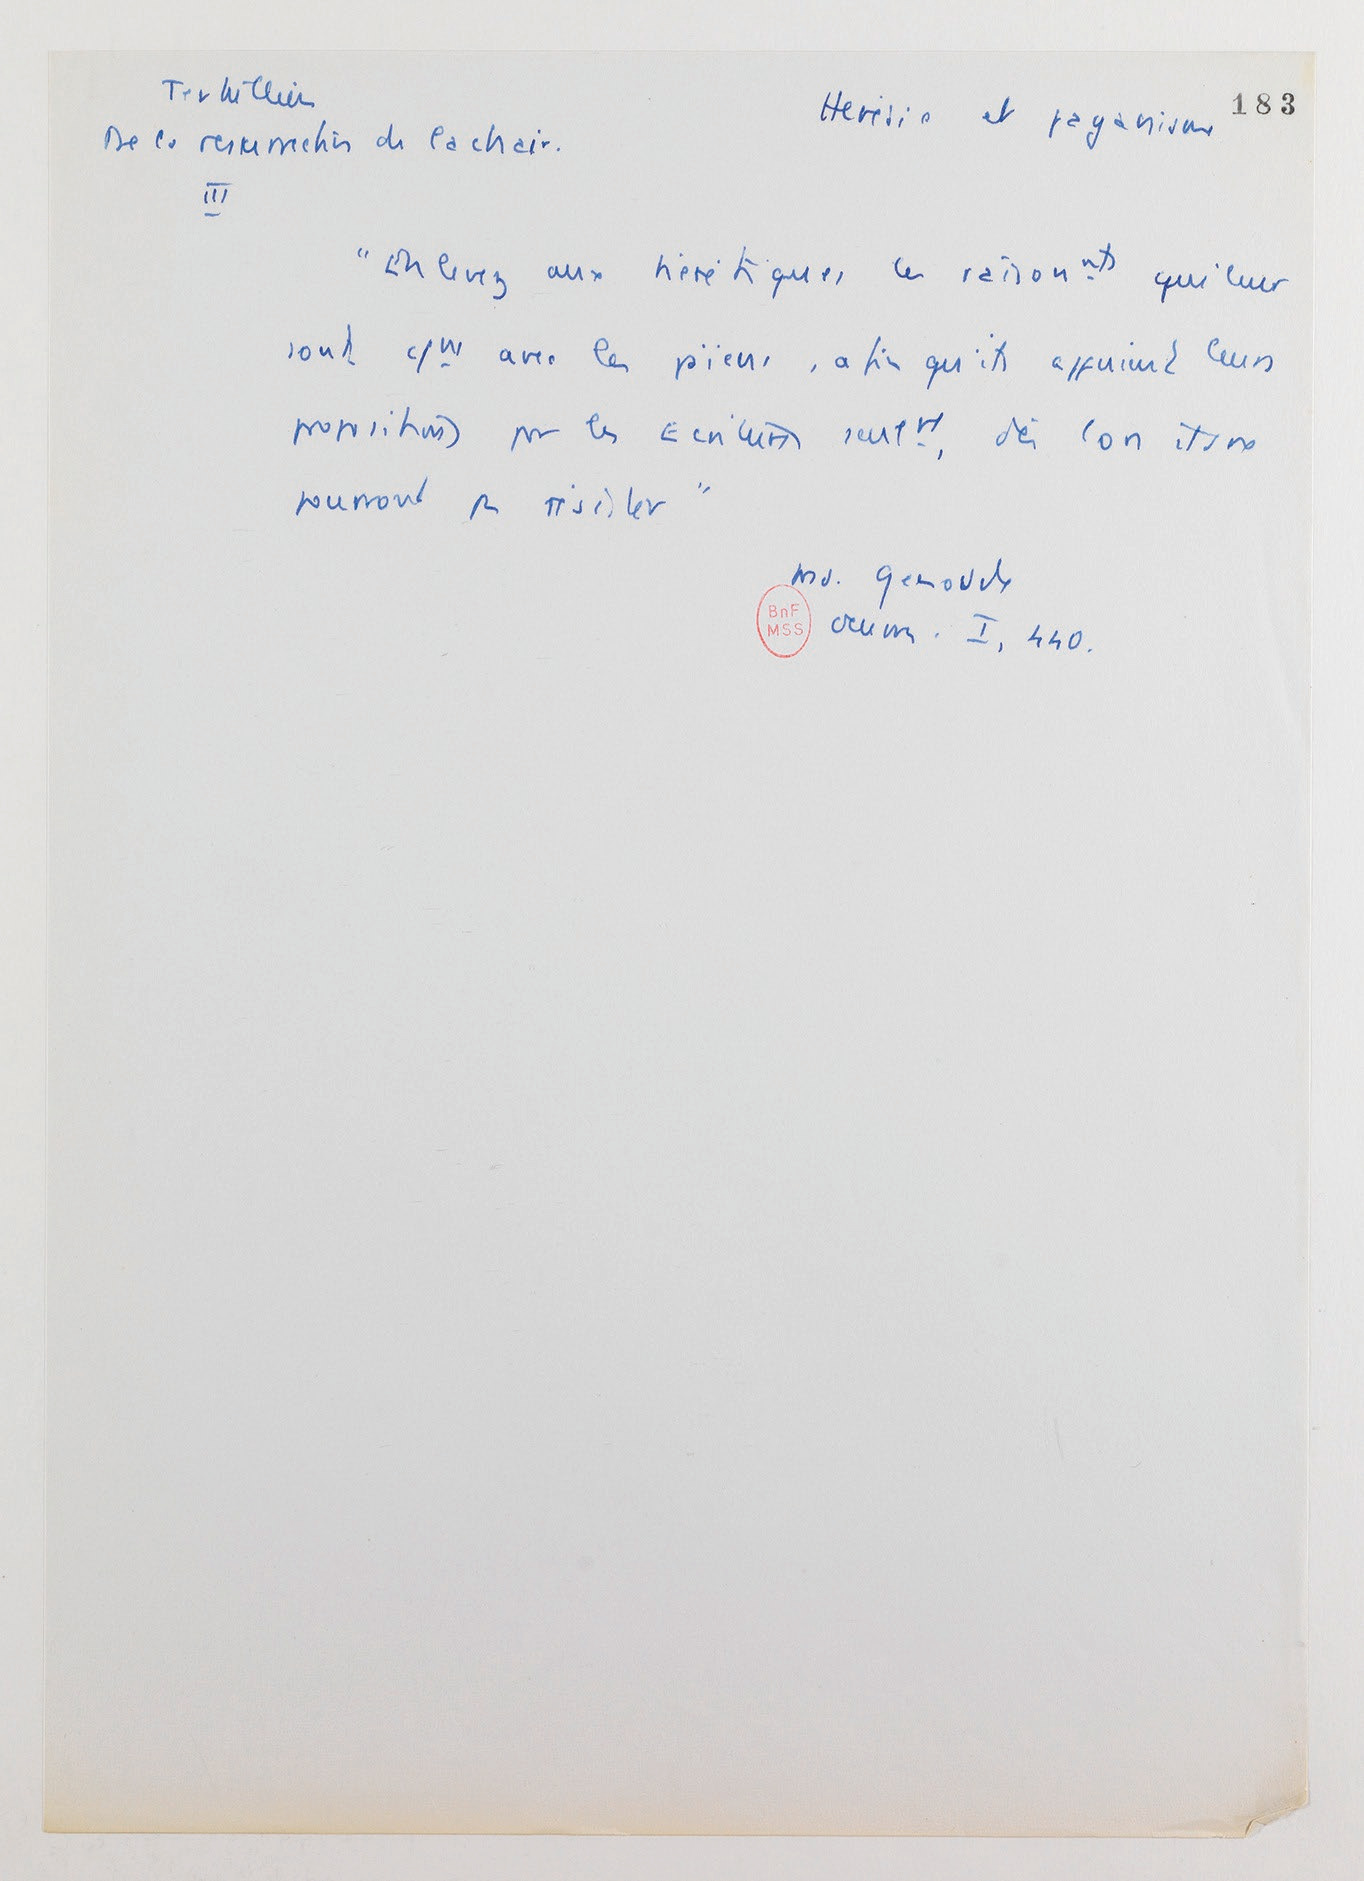 Tertullien
Heresie et paganisme 183
De la resurrection de la chair.
III
"Enlevez aux hérétiques les raisonnts qui leur
sont cns avec les païens, afin qu'ils appuient leurs
propositions par les Ecritures seult, dès lors ils ne
pourront pas résister"
Genoude
BnF
MSS
Oeuvres. I, 440.